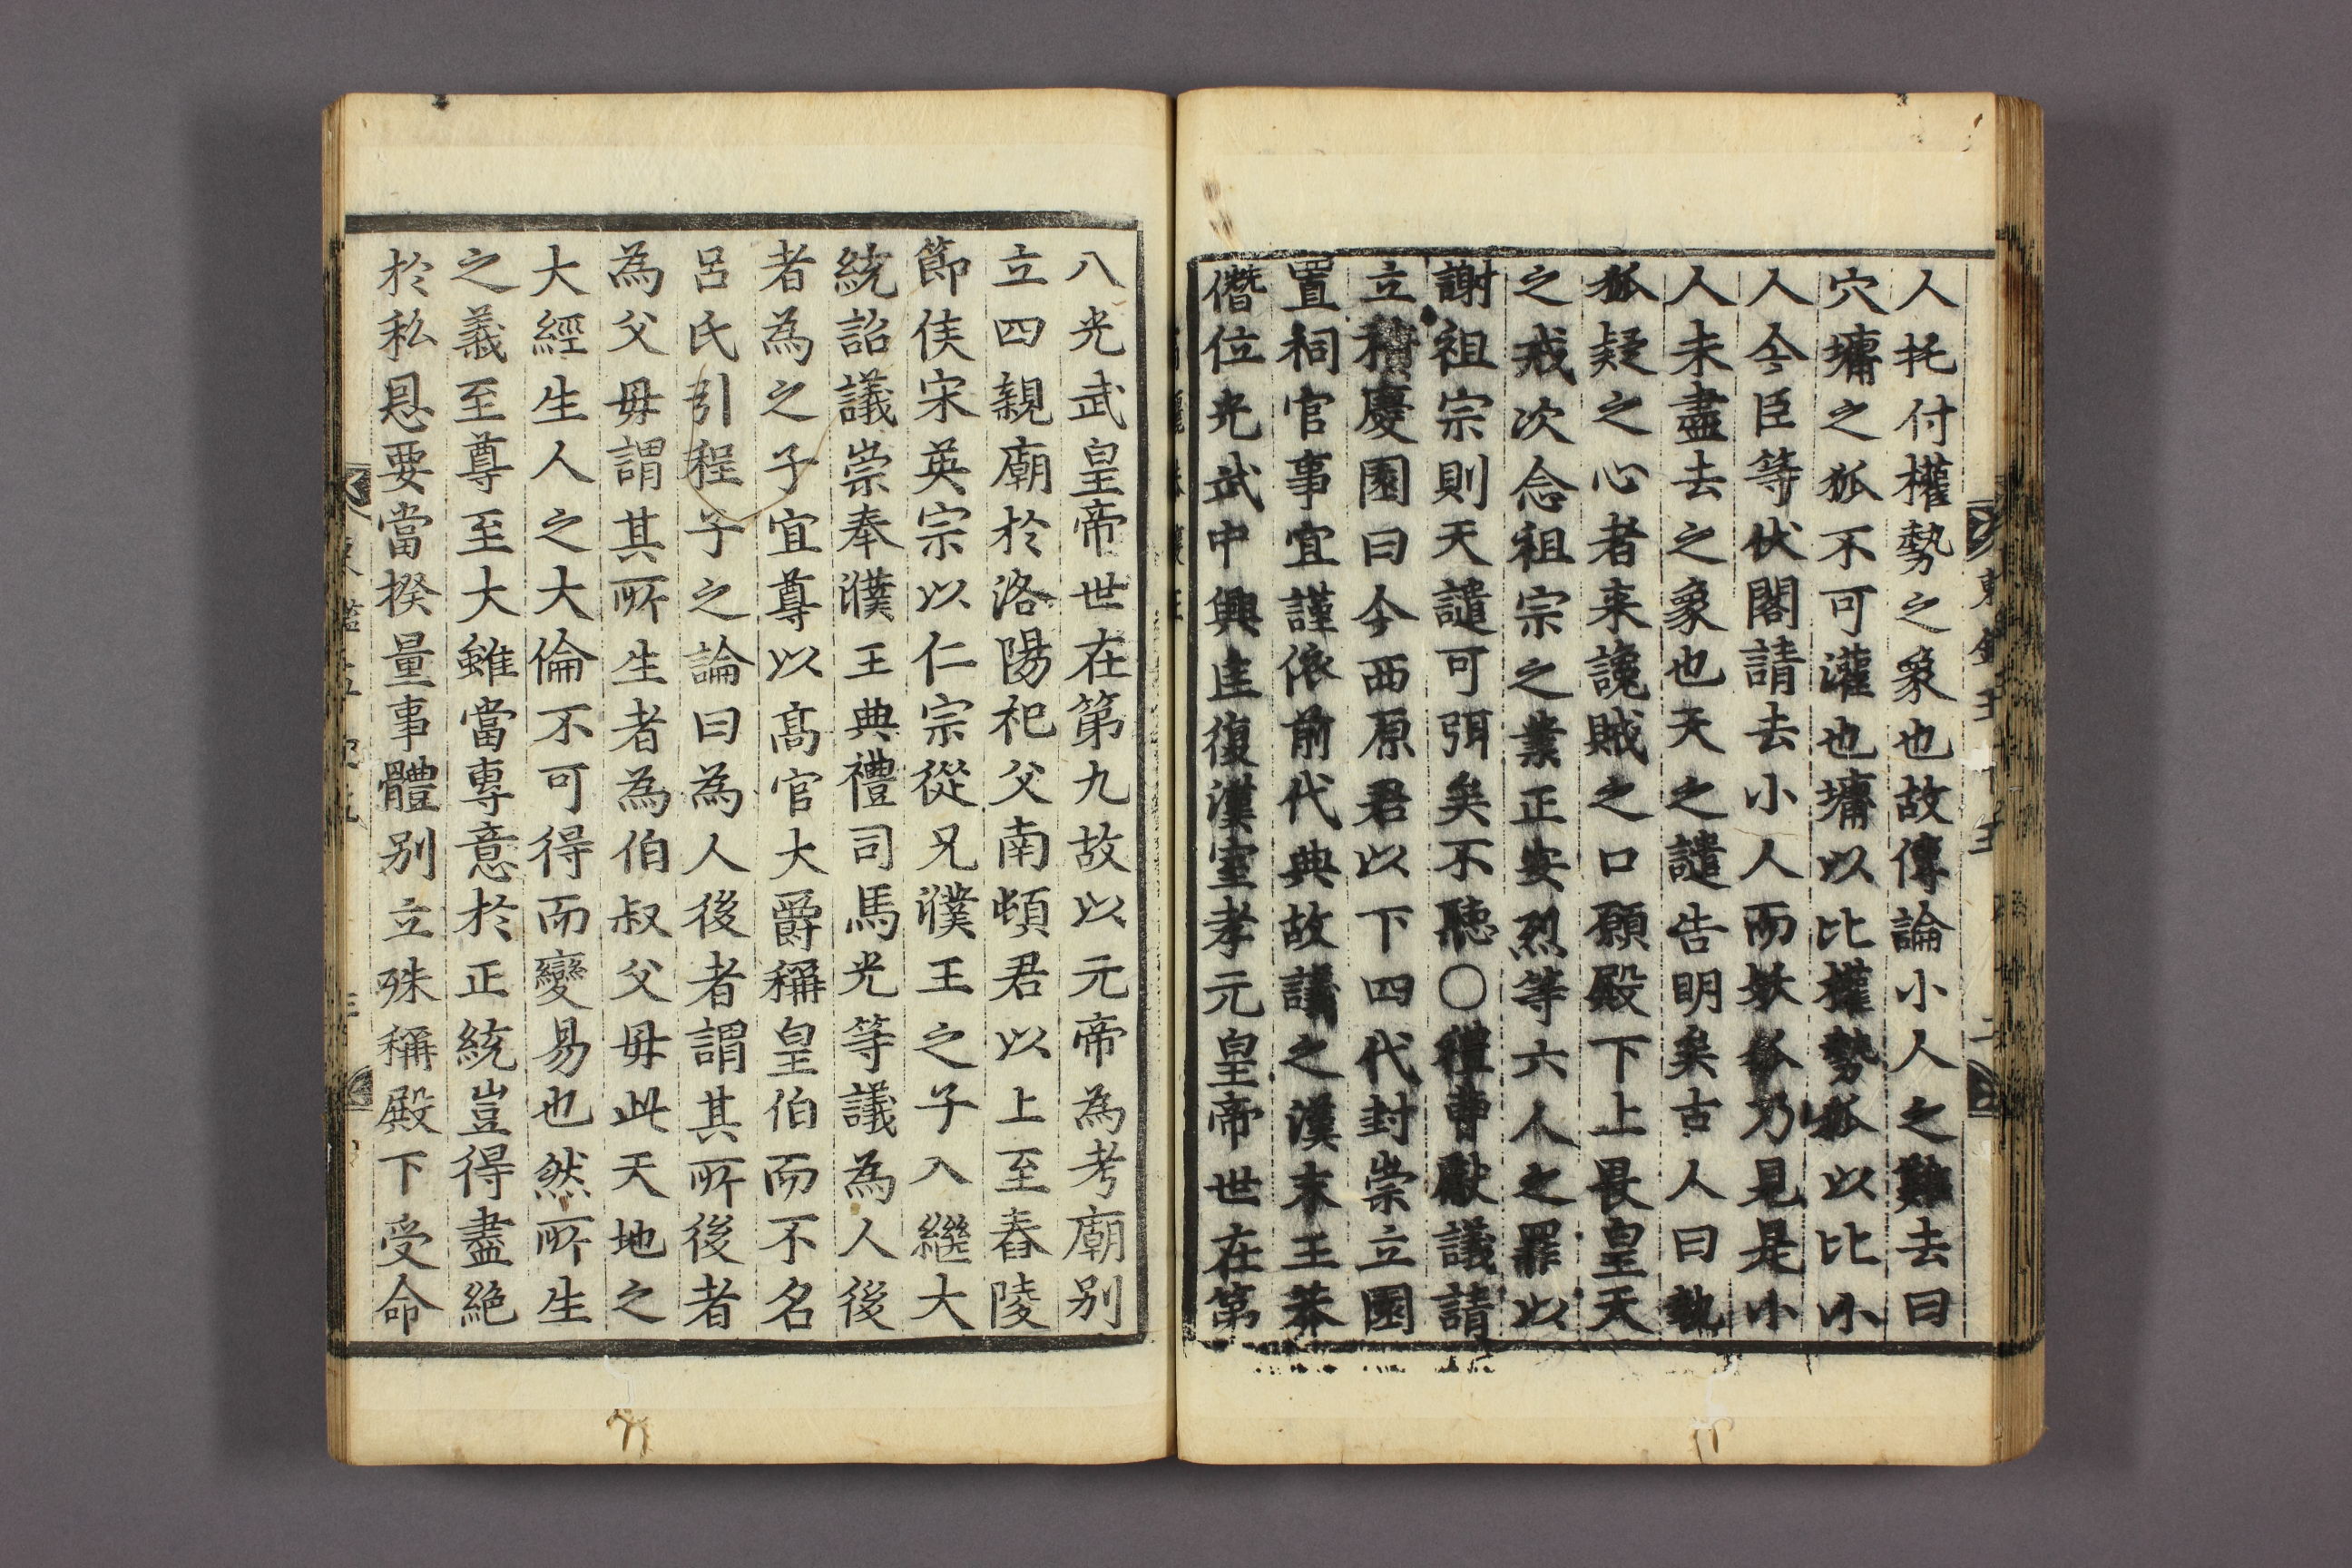 人托付權勢之象也故傳論小人之難去曰
穴墉之狐不可灌也墉以比權勢狐以比小
人今臣等伏閤請去小人而妖狐乃見是小
人未盡去之象也天之譴告明矣古人曰執
狐疑之心者来讒賊之口願殿下上畏皇天
之戒次念祖宗之業正安烈等六人之罪以
謝祖宗則天譴可弭矣不聽○禮曹獻議請
立積慶園曰今西原君以下四代封崇立園
置祠官事宜謹依前代典故議之漢末王莽
僭位光武中興匡復漢室孝元皇帝世在第
八光武皇帝世在第九故以元帝為考廟别
立四親廟於洛陽祀父南頓君以上至舂陵
節侯宋英宗以仁宗從兄濮王之子入繼大
統詔議崇奉濮王典禮司馬光等議為人後
者為之子宜尊以髙官大爵稱皇伯而不名
呂氏引程子之論曰為人後者謂其所後者
為父母謂其所生者為伯叔父母此天地之
大經生人之大倫不可得而變易也然所生
之義至尊至大雖當專意於正統豈得盡絶
於私恩要當揆量事體别立殊稱殿下受命